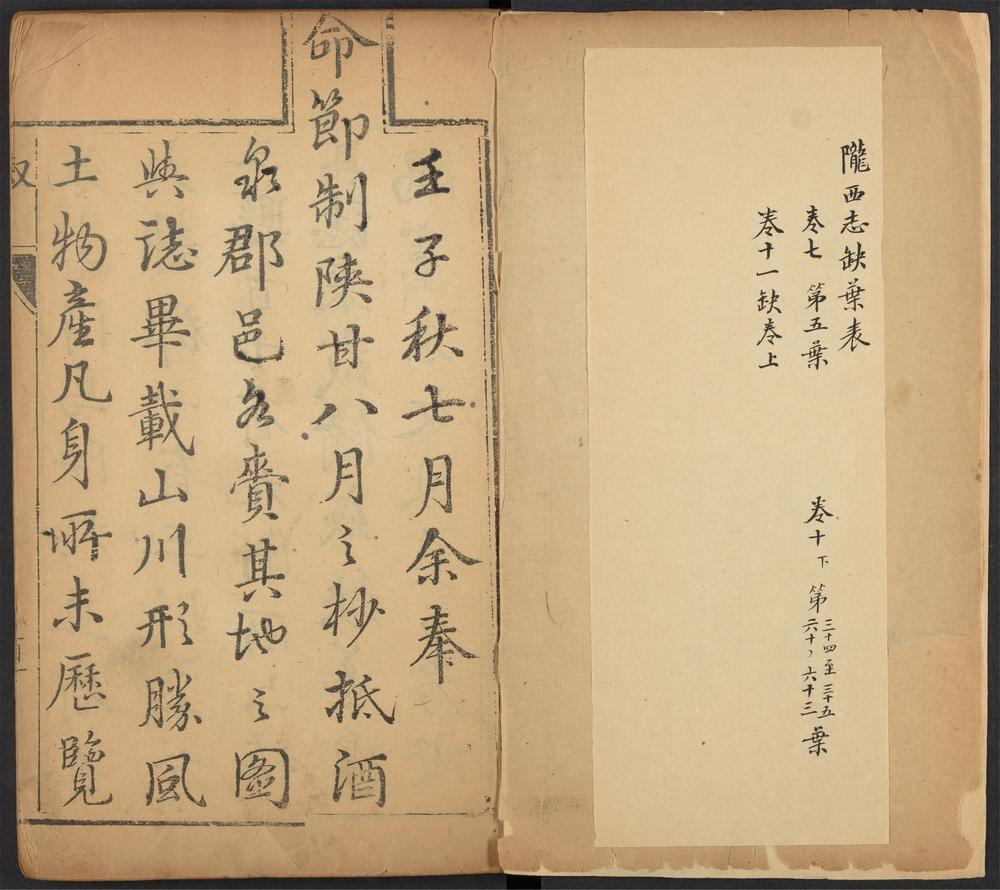 隴西志缺葉表
卷七 第五葉
卷十一缺卷上
卷十下 第三十四至三十五 六十、六十三葉
壬子秋七月余奉
命節制陝甘八月之杪抵酒
泉郡邑各賫其地之图
輿誌畢載山川形勝風
土物產凡身所未歷覽